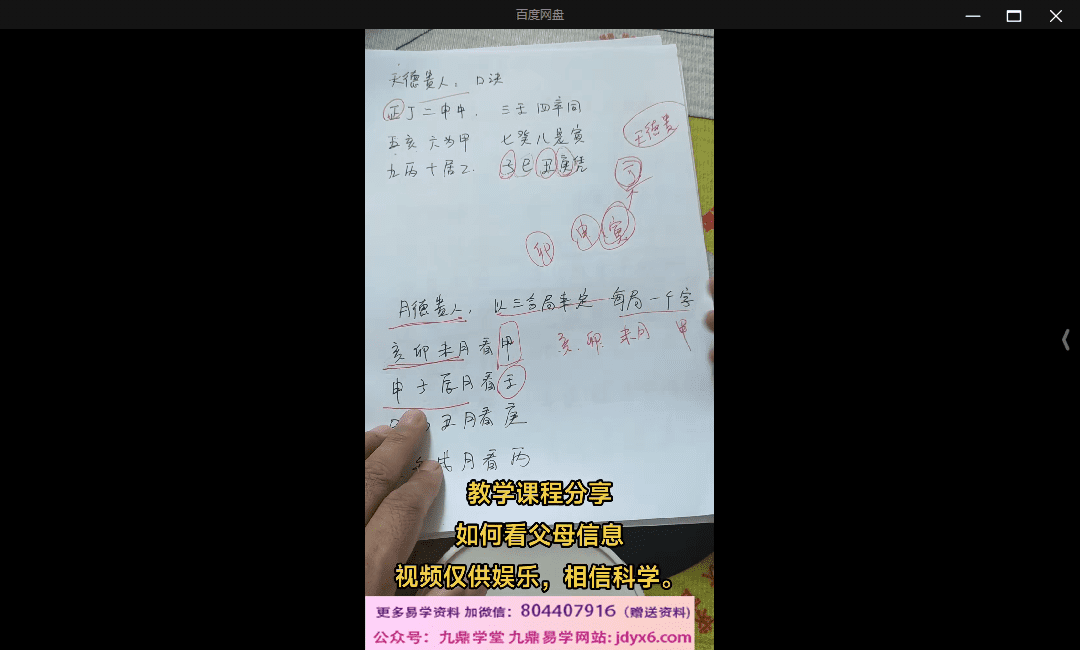 百度网盘
天德贵人，口决
正丁二申中，三壬四辛同
五亥六为甲 七癸八是寅
九丙十居乙 子巳丑庚凭
天德贵
寅
申
卯
月德贵人，以三合局来定 每局一个字
亥卯未月看甲
亥.卯.未月 甲
申子辰月看壬
丑月看庚
戌月看丙
教学课程分享
如何看父母信息
视频仅供娱乐，相信科学。
更多易学资料 加微信：804407916（赠送资料）
公众号：九鼎学堂 九鼎易学网站：jdyx6.com